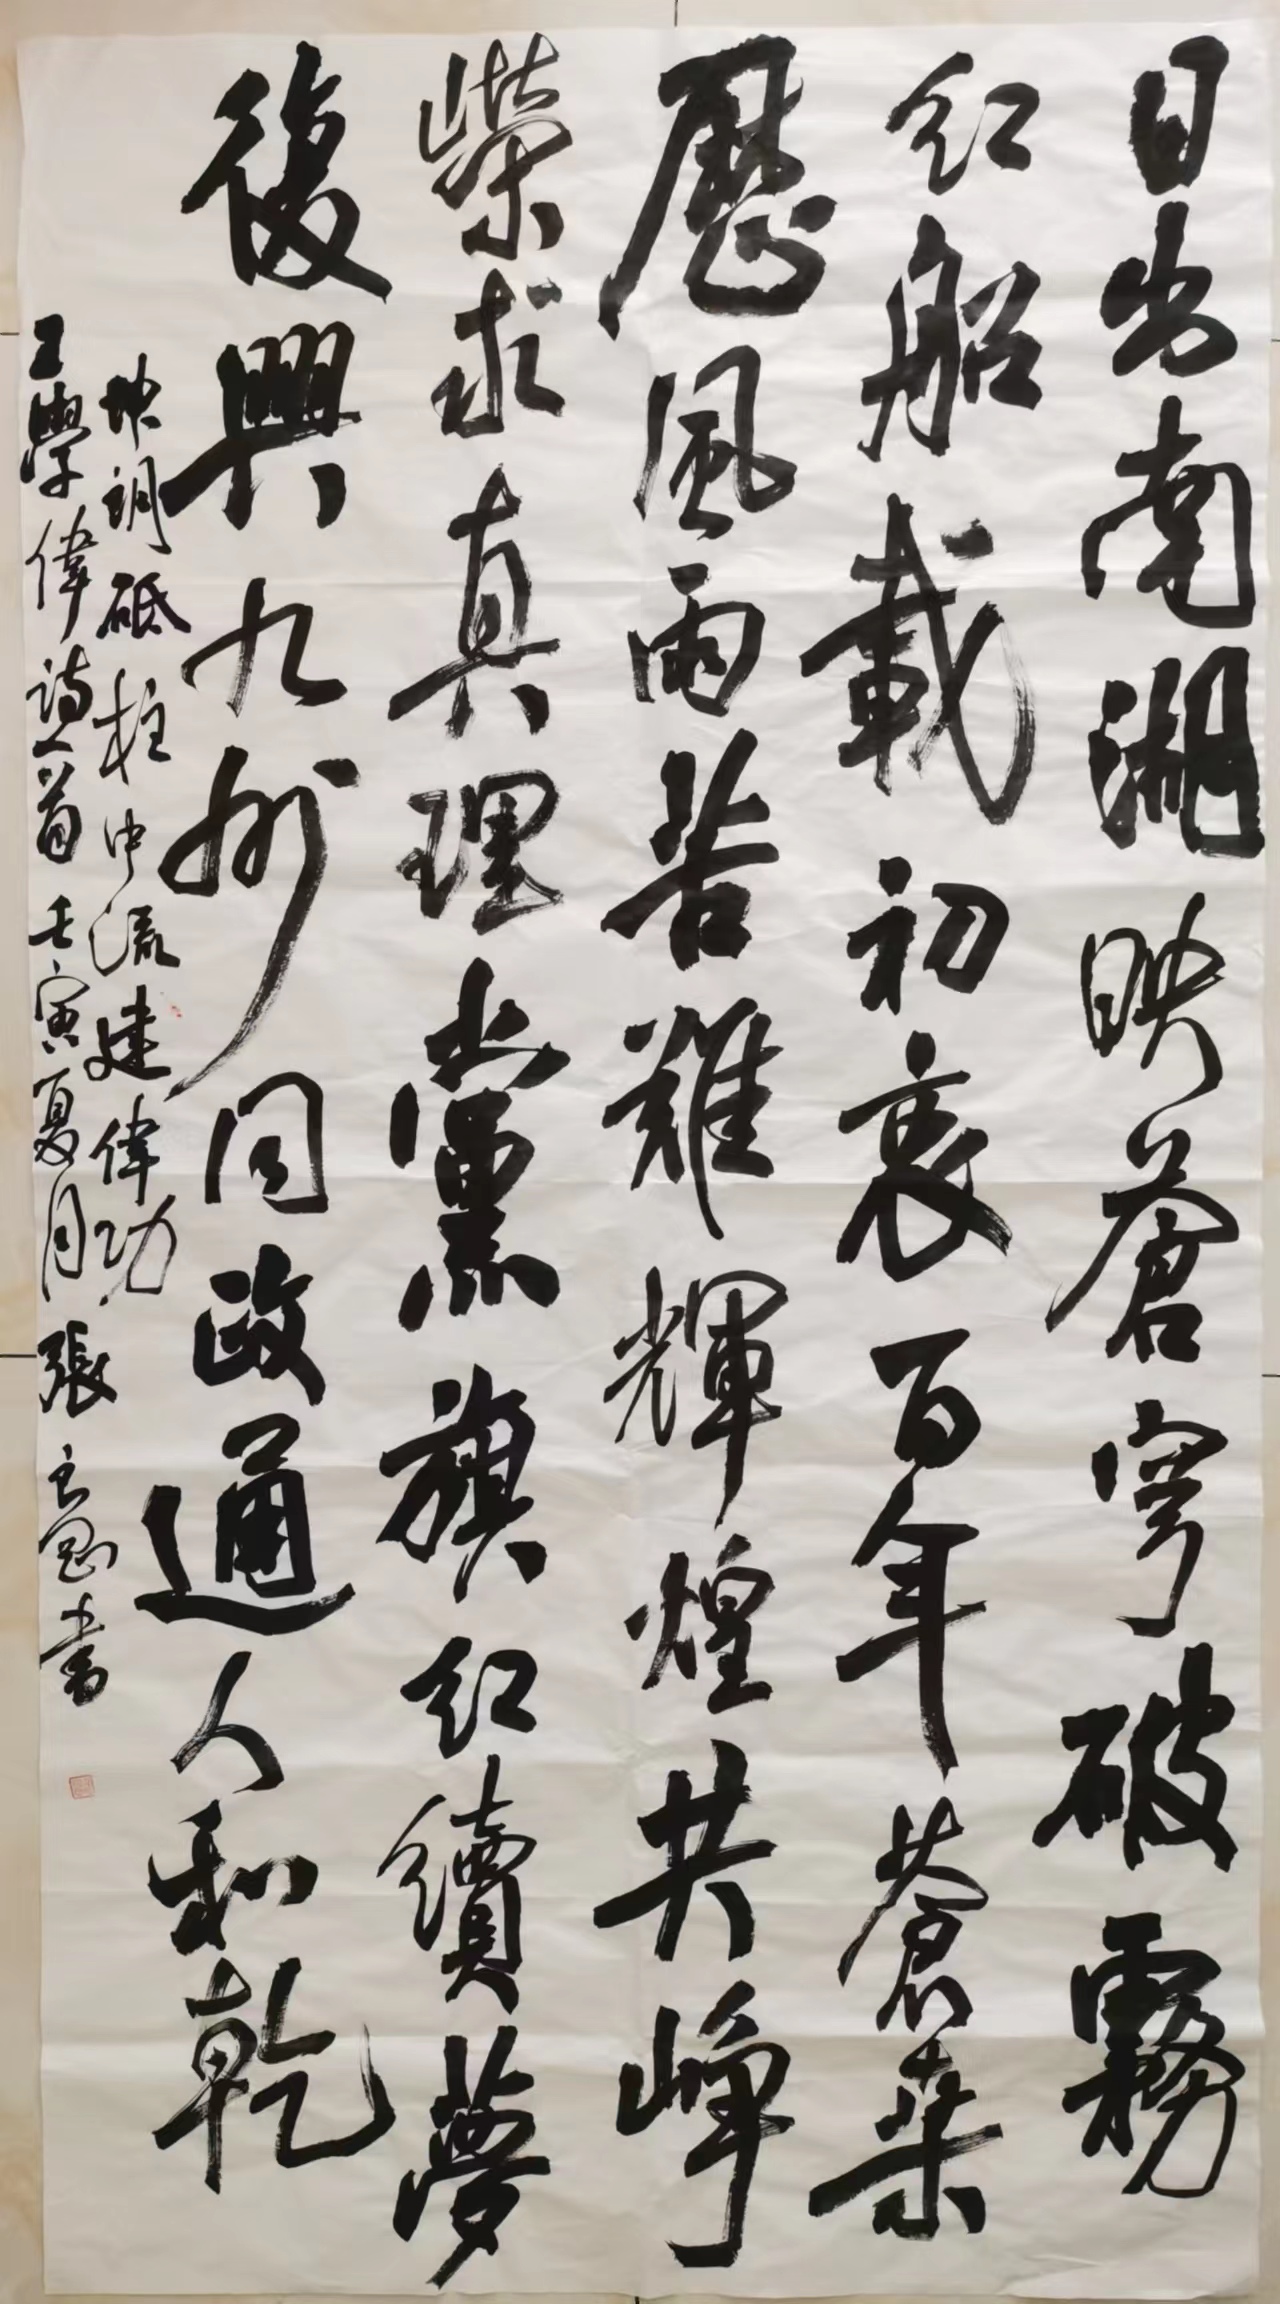 日出南湖映蒼穹破霧
红船載初衷百年蒼桑
歷風雨苦難輝煌共崢
榮求真理黨旗红續夢
復興九州同政通人和乾
坤朗砥柱中流建偉功
王學偉詩一首壬寅夏月張書